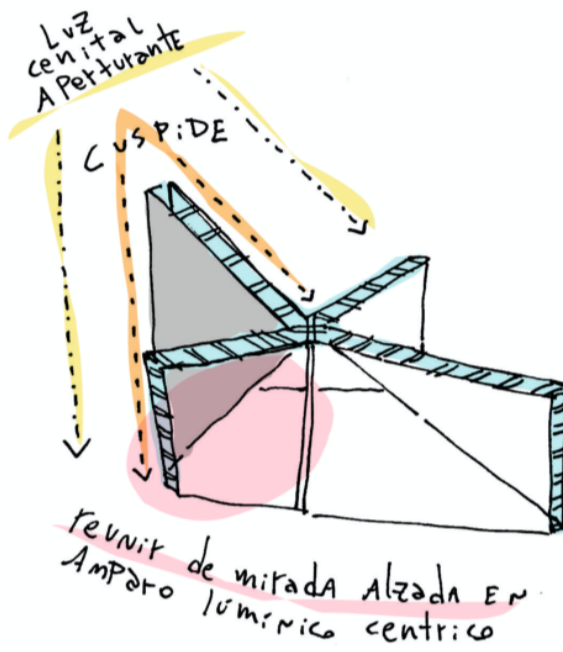 LUZ
cenital
APerturante
CUSPiDE
reunir de miradA Alzada EN
AmParo lúmínico centrico